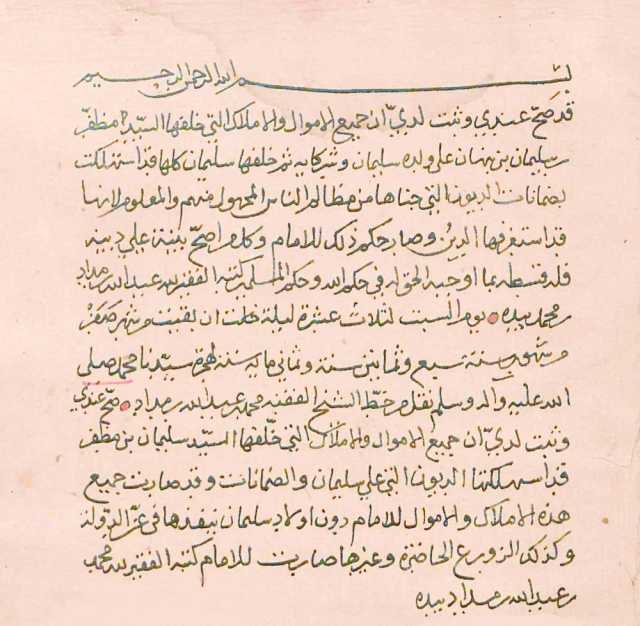 بسم الله الرحمن الرحيم
قد صحّ عندي وثبت لديّ ان جميع الاموال والاملاك التي خلفها السيّد مظفّر
بن سليمان بن نبهان على ولده سليمان وشركايه ثم خلفها سليمان كلها قد استهلكت
بضمانات الديون التي جناها من مظالم الناس المجهول منهم والمعلوم لانها
قد استغرقها الدين وصار حكم ذلك للامام وكل من اصحّ بينة علي دينه
فله قسطه بما اوجبه الحق له في حكم الله وحكم المسلمين كتبه الفقير لله عبد الله بن مداد
بن محمد بيده يوم السبت لثلاث عشرة ليلة خلت ان بقيت من شهر صفر
من شهور سنة سبع وثمانين سنة وثماني ماية سنة لهجرة سيّدنا محمد صلى
الله عليه واله وسلم نقل من خطّ الشيخ الفقيه محمد بن عبد الله بن مداد صحّ عندي
وثبت لديّ ان جميع الاموال والاملاك التي خلّفها السيّد سليمان بن مظفر
قد استهلكتها الديون التي علي سليمان والضمانات وقد صارت جميع
هذه الاملاك والاموال للامام دون اولاد سليمان ينفذها في عزّ الدولة
وكذلك الزروع الحاضرة وغيرها صارت للامام كتبه الفقير لله محمد
بن عبد الله بن مداد بيده